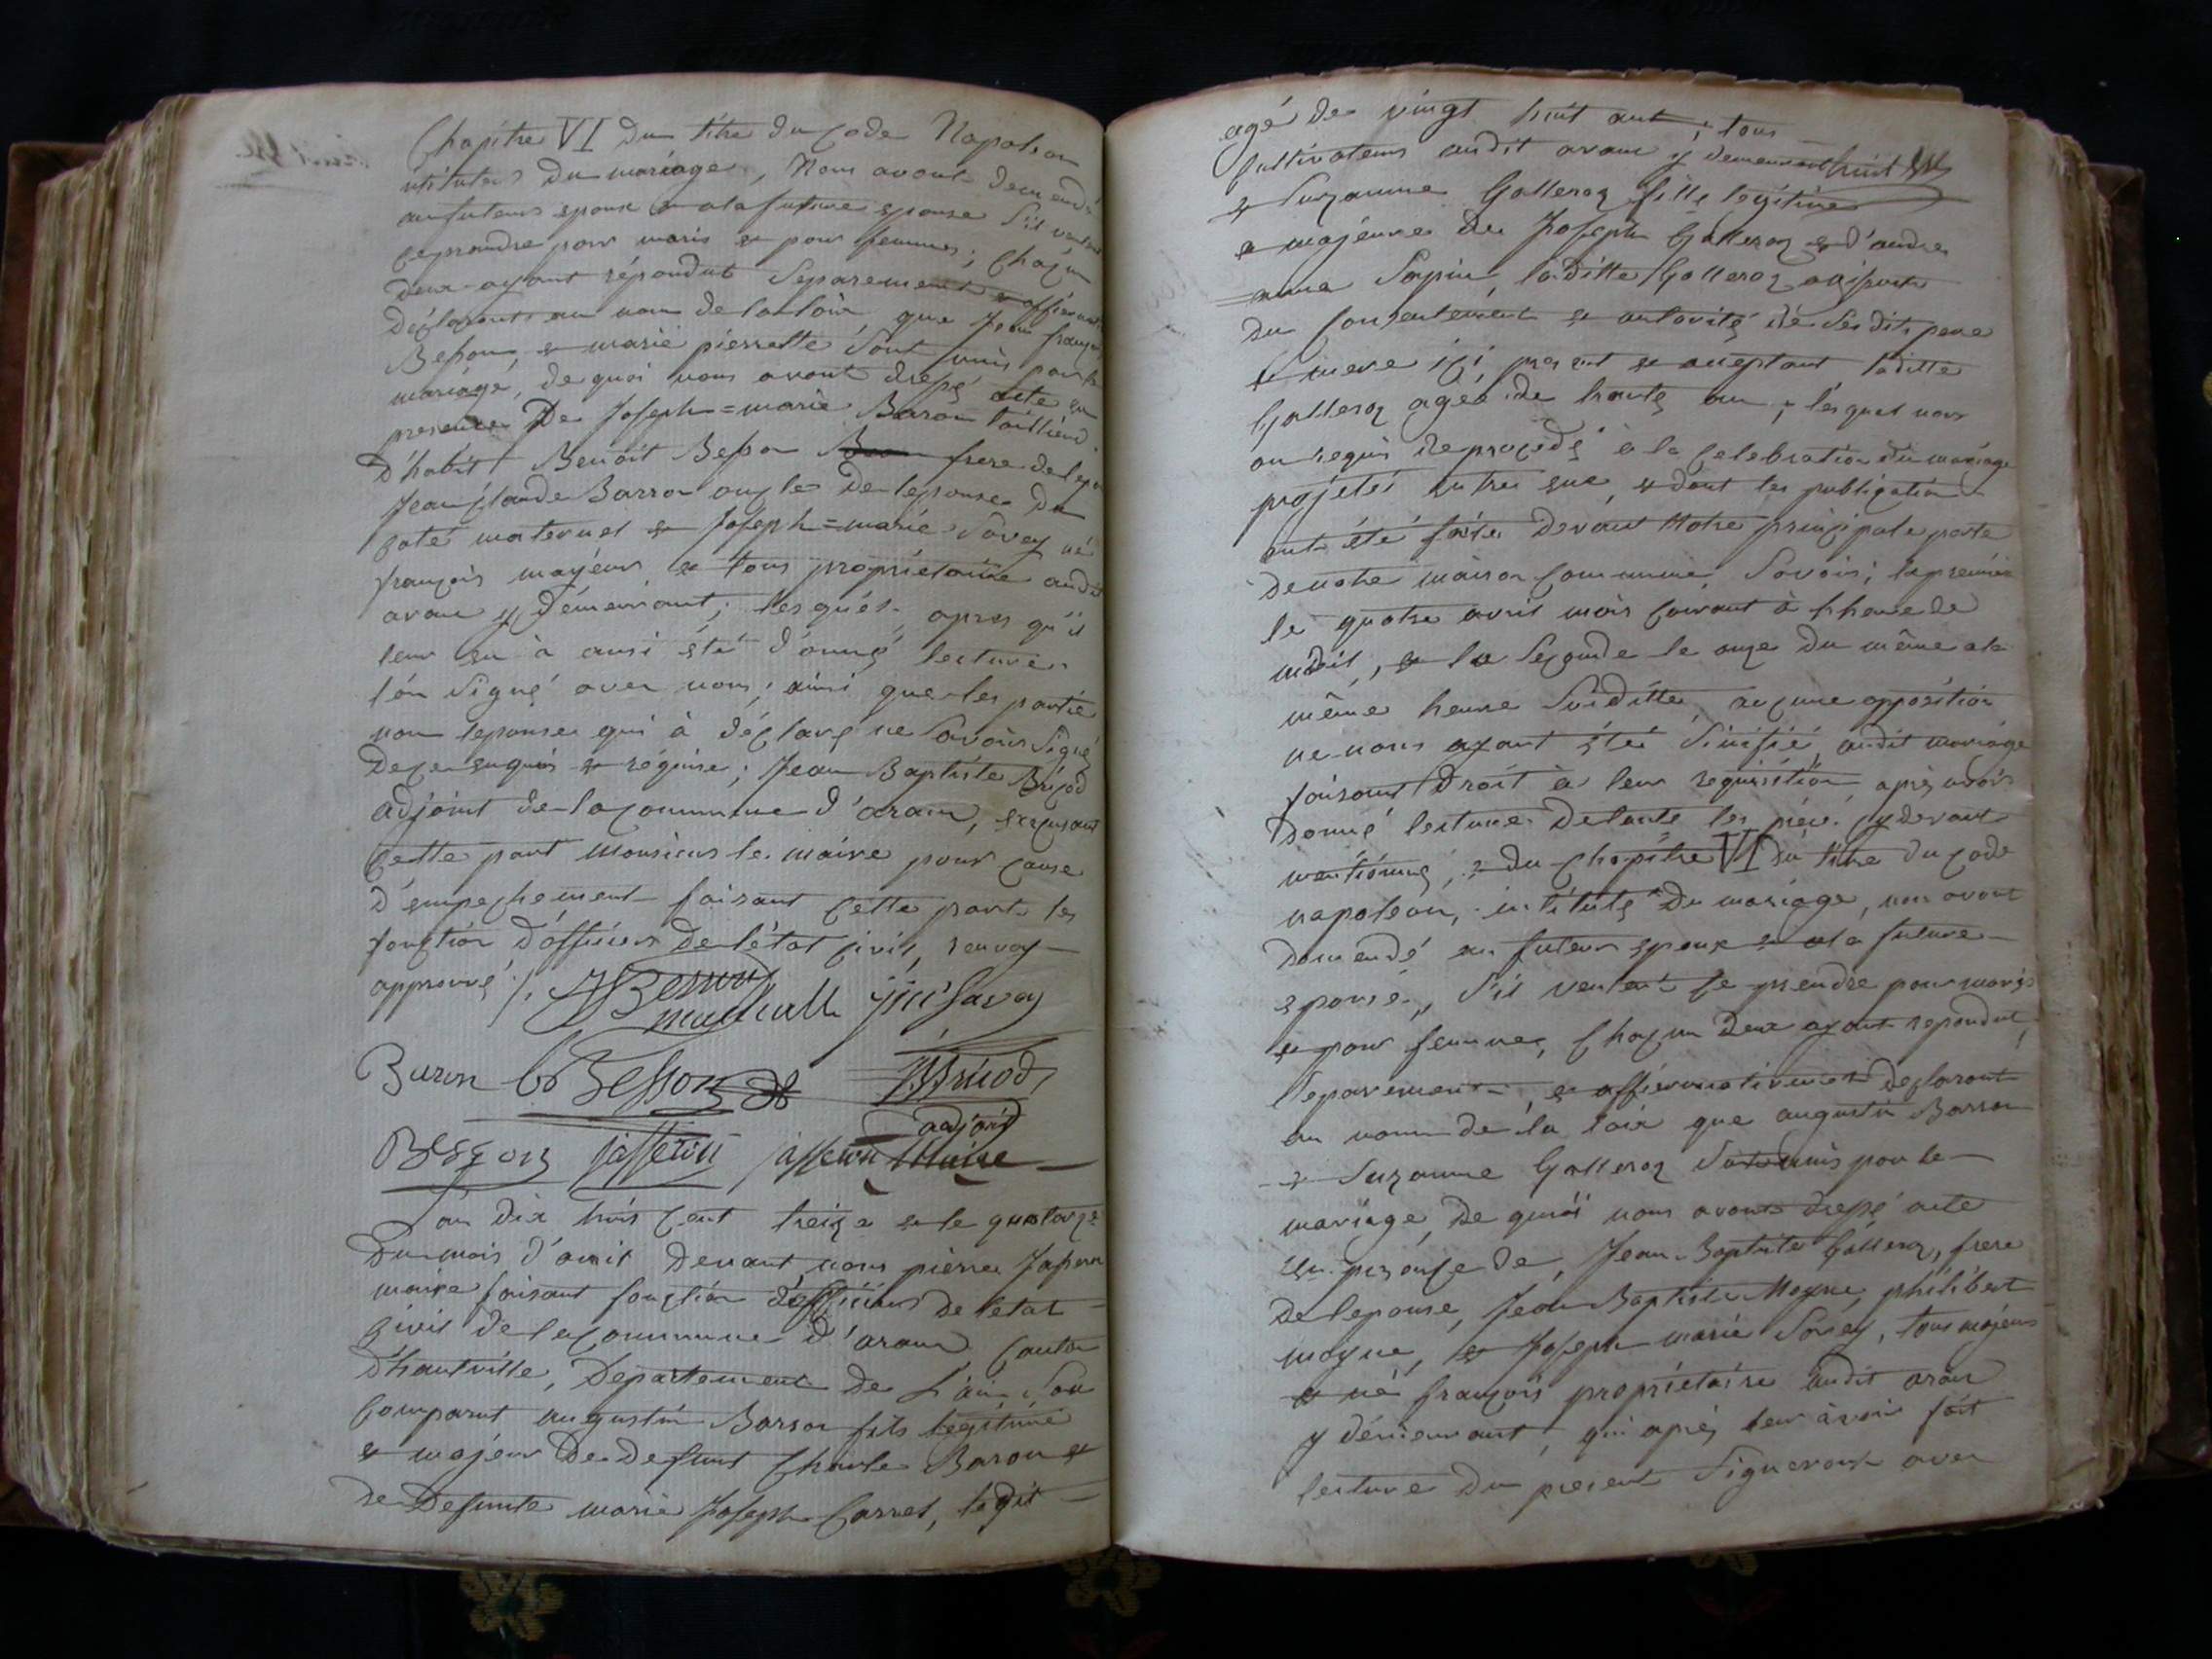 Chapitre VI du titre du Code Napoleon
intitulés du mariage, Nous avont demendé
au futeurs epoux et a la future epouse s'il veulent
ce prandre pour maris et pour femmes; chacun
deux ayant répondut separement et affirmati
déclaront au nom de la loix que Jean françois
Besson, et marie pierrette sont unis par le
mariage, de quoi nous avont dressé acte en
presence De Joseph=marie Baron tailleur
d'habit Benoit Besson frere de lepo
Jean Claude Barron oncle de lepouse du
coté maternel et Joseph=marie Savey né
français mayeurs et tous propriétaire audit
aran y démeurant; lesquels apres qu'il
leur en à ausi été donné lecture
l'ón signé avec nous; ainsi que les partie
non lepouse qui à déclaré ne savoir signé
de ce enquis et réquise; Jean Baptiste Bricod
adjoint de la commune d'aran, excusant
cette part Monsieur le maire pour cause
d'empechement faisant cette part les
fonction d'officiers de l'état civil, renvoy
approuvé
Besson jm Savey
Buron Bt Besson JBBricod
adjoint
Besson jasseron jasseron Maire
L'an dix huis cent treize et le quatorze
du mois d'avril devant nous pierre Jasseron
maire faisant fonction d'officiers de l'état
civil de la commune d'aran canton
d'hautville, Departement de l'ain son
comparut augustin Barron fils legitime
et majeur de defunt Charle Baron et
de Defunte marie Joseph Carrel, ledit
agé de vingt huit ant; tous
Cultivateurs audit aran y demeurant huit
et Suzanne Galleroz fille legitime
et majeure de Joseph Galleroz et d'andre
anna Sapin, laditte Galleroz assistée
du consentement et autorité de sesdits pere
et mere ici present et aceptant laditte
Galleroz ageé de trante an; lesquel nous
on requis de procedé à la celebration du mariage
projetéi entre eux, et dont les publication
ont été faite devant Notre principale porte
de notre maison commune, Savoir; la premiere
le quatre avril mois courant à lheure de
midit, et la segonde le onze du même a la
même heure susditte aucune opposition
ne nous ayant été sinifié audit mariage
faisant droit à leur requisition, après avoir
donné lecture de toute les piéce cy devant
mentionné, et du Chapitre VI du titre du Code
napoleon, intitulé du mariage, nous avont
demendé au futeur epoux et a la future
epouse, s'il veulent ce prendre pour maris
et pour femmes, Chacun deux ayant repondut
separement et affirmativement déclaront
au nom de la loix que augustin Barron
et Suzanne Galleroz sont unis par le
mariage, de quoi nous avont dressé acte
en presence de, Jean Baptiste Galleroz, frere
de lepouse, Jean Baptiste Moyne, philibert
moyne, et Joseph marie Savey, tous majeurs
et né français propriétaire audit aran
y démeurant, qui après leur avoir fait
lecture du present signeront avec